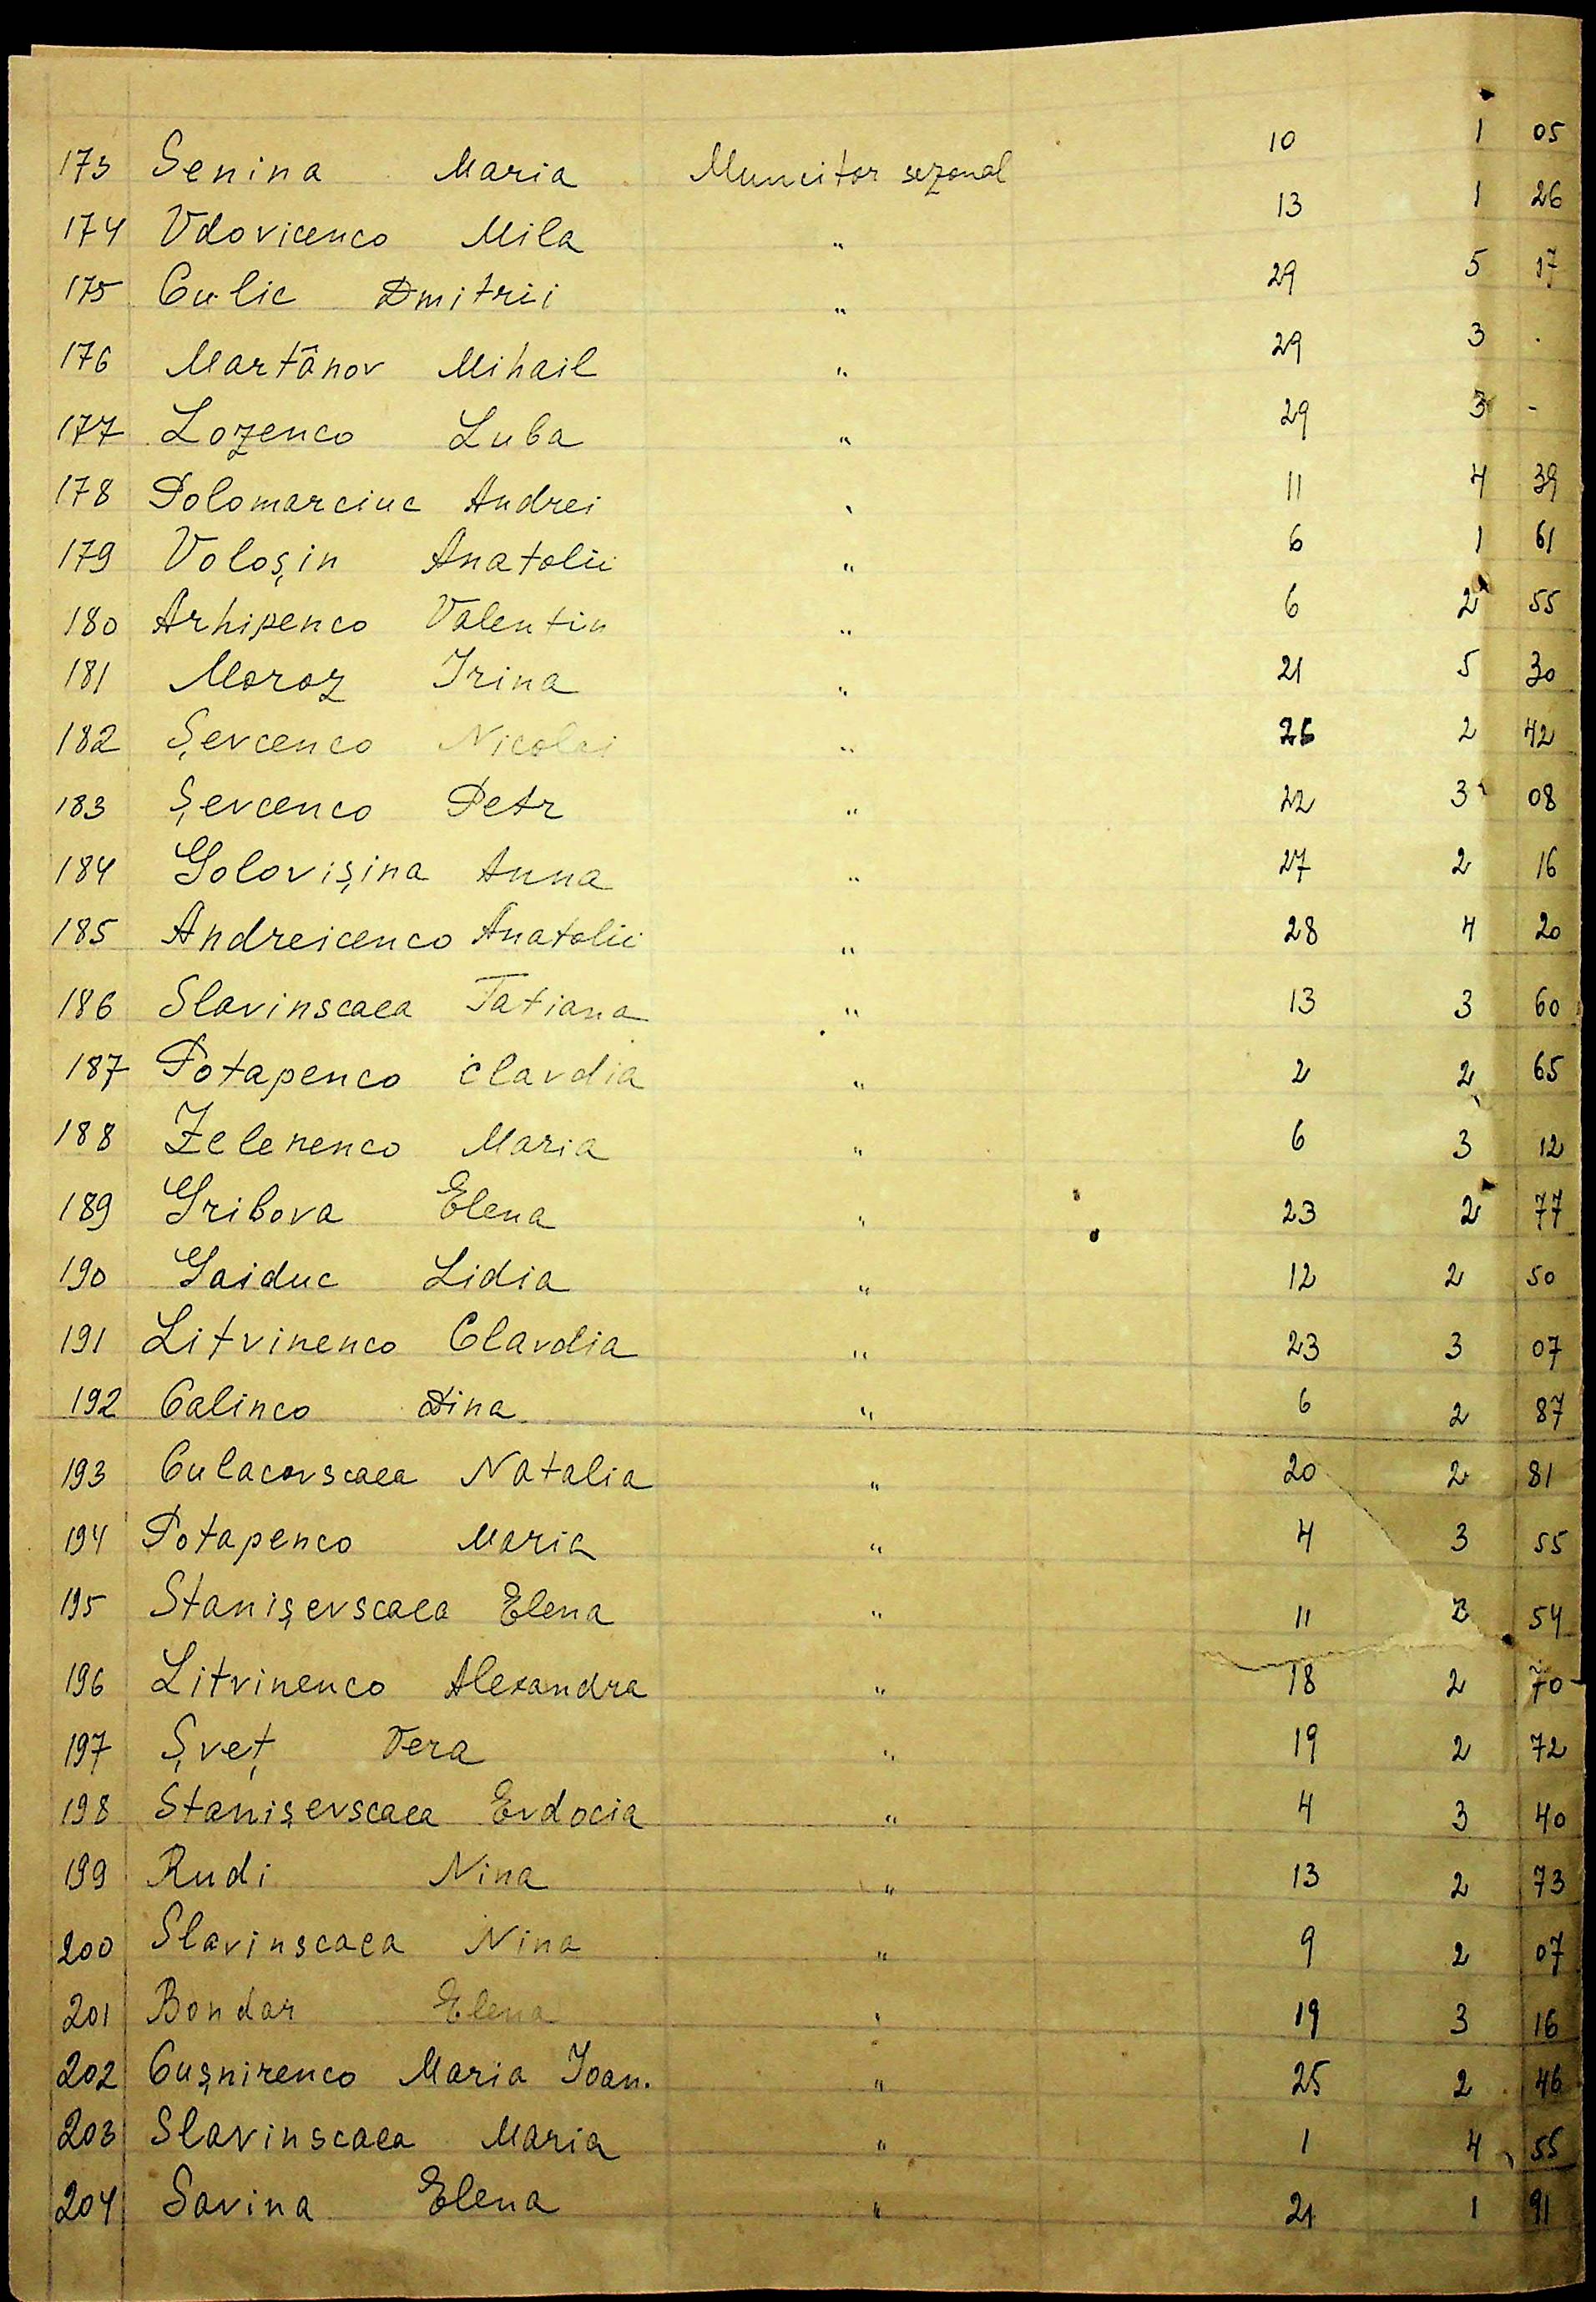 173 Senina Maria Muncitor sezonal 10 1 05
174 Vdovicenco Mila " 13 1 26
175 Culic Dmitrii " 29 5 17
176 Martânov Mihail " 29 3 -
177 Lozenco Luba " 29 3 -
178 Polomarciuc Andrei " 11 4 39
179 Voloșin Anatolii " 6 1 61
180 Arhipenco Valentin " 6 2 55
181 Moroz Irina " 21 5 30
182 Șevcenco Nicolai " 26 2 42
183 Șevcenco Petr " 22 3 08
184 Golovișina Anna " 27 2 16
185 Andreicenco Anatolii " 28 4 20
186 Slavinscaea Tatiana " 13 3 60
187 Potapenco Clavdia " 2 2 65
188 Zelenenco Maria " 6 3 12
189 Gribova Elena " 23 2 77
190 Gaiduc Lidia " 12 2 50
191 Litvinenco Clavdia " 23 3 07
192 Calinco Dina " 6 2 87
193 Culacovscaea Natalia " 20 2 81
194 Potapenco Maria " 4 3 55
195 Stanișevscaea Elena " 11 54
196 Litvinenco Alexandra " 18 2 70
197 Șveț Vera " 19 2 72
198 Stanișevscaea Evdocia " 4 3 40
199 Rudi Nina " 13 2 73
200 Slavinscaea Nina " 9 2 07
201 Bondar Elena " 19 3 16
202 Cușnirenco Maria Ioan. " 25 2 46
203 Slavinscaea Maria " 1 4 55
204 Savina Elena " 21 1 91